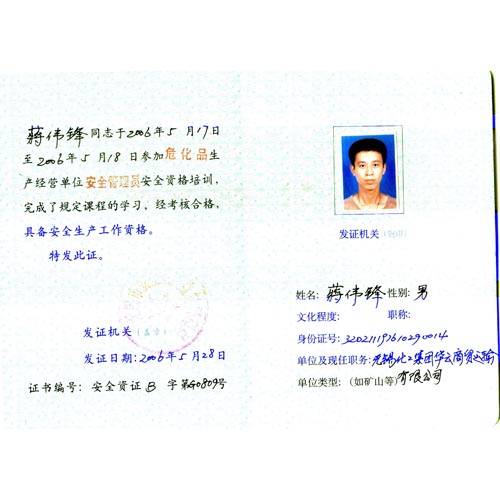 蒋伟锋同志于2006年5月17日
至2006年5月18日参加危化品生
产经营单位安全管理员安全资格培训,
完成了规定课程的学习,经考核合格,
具备安全生产工作资格。
特发此证。
发证机关(盖章)
发证日期:2006年5月28日
证书编号:安全资证B字第G0809号
发证机关(钢印)
姓名:蒋伟锋性别:男
文化程度: 职称:
身份证号:
单位及现任职务:无锡化工集团华云商贸运输
单位类型:(如矿山等)有限公司